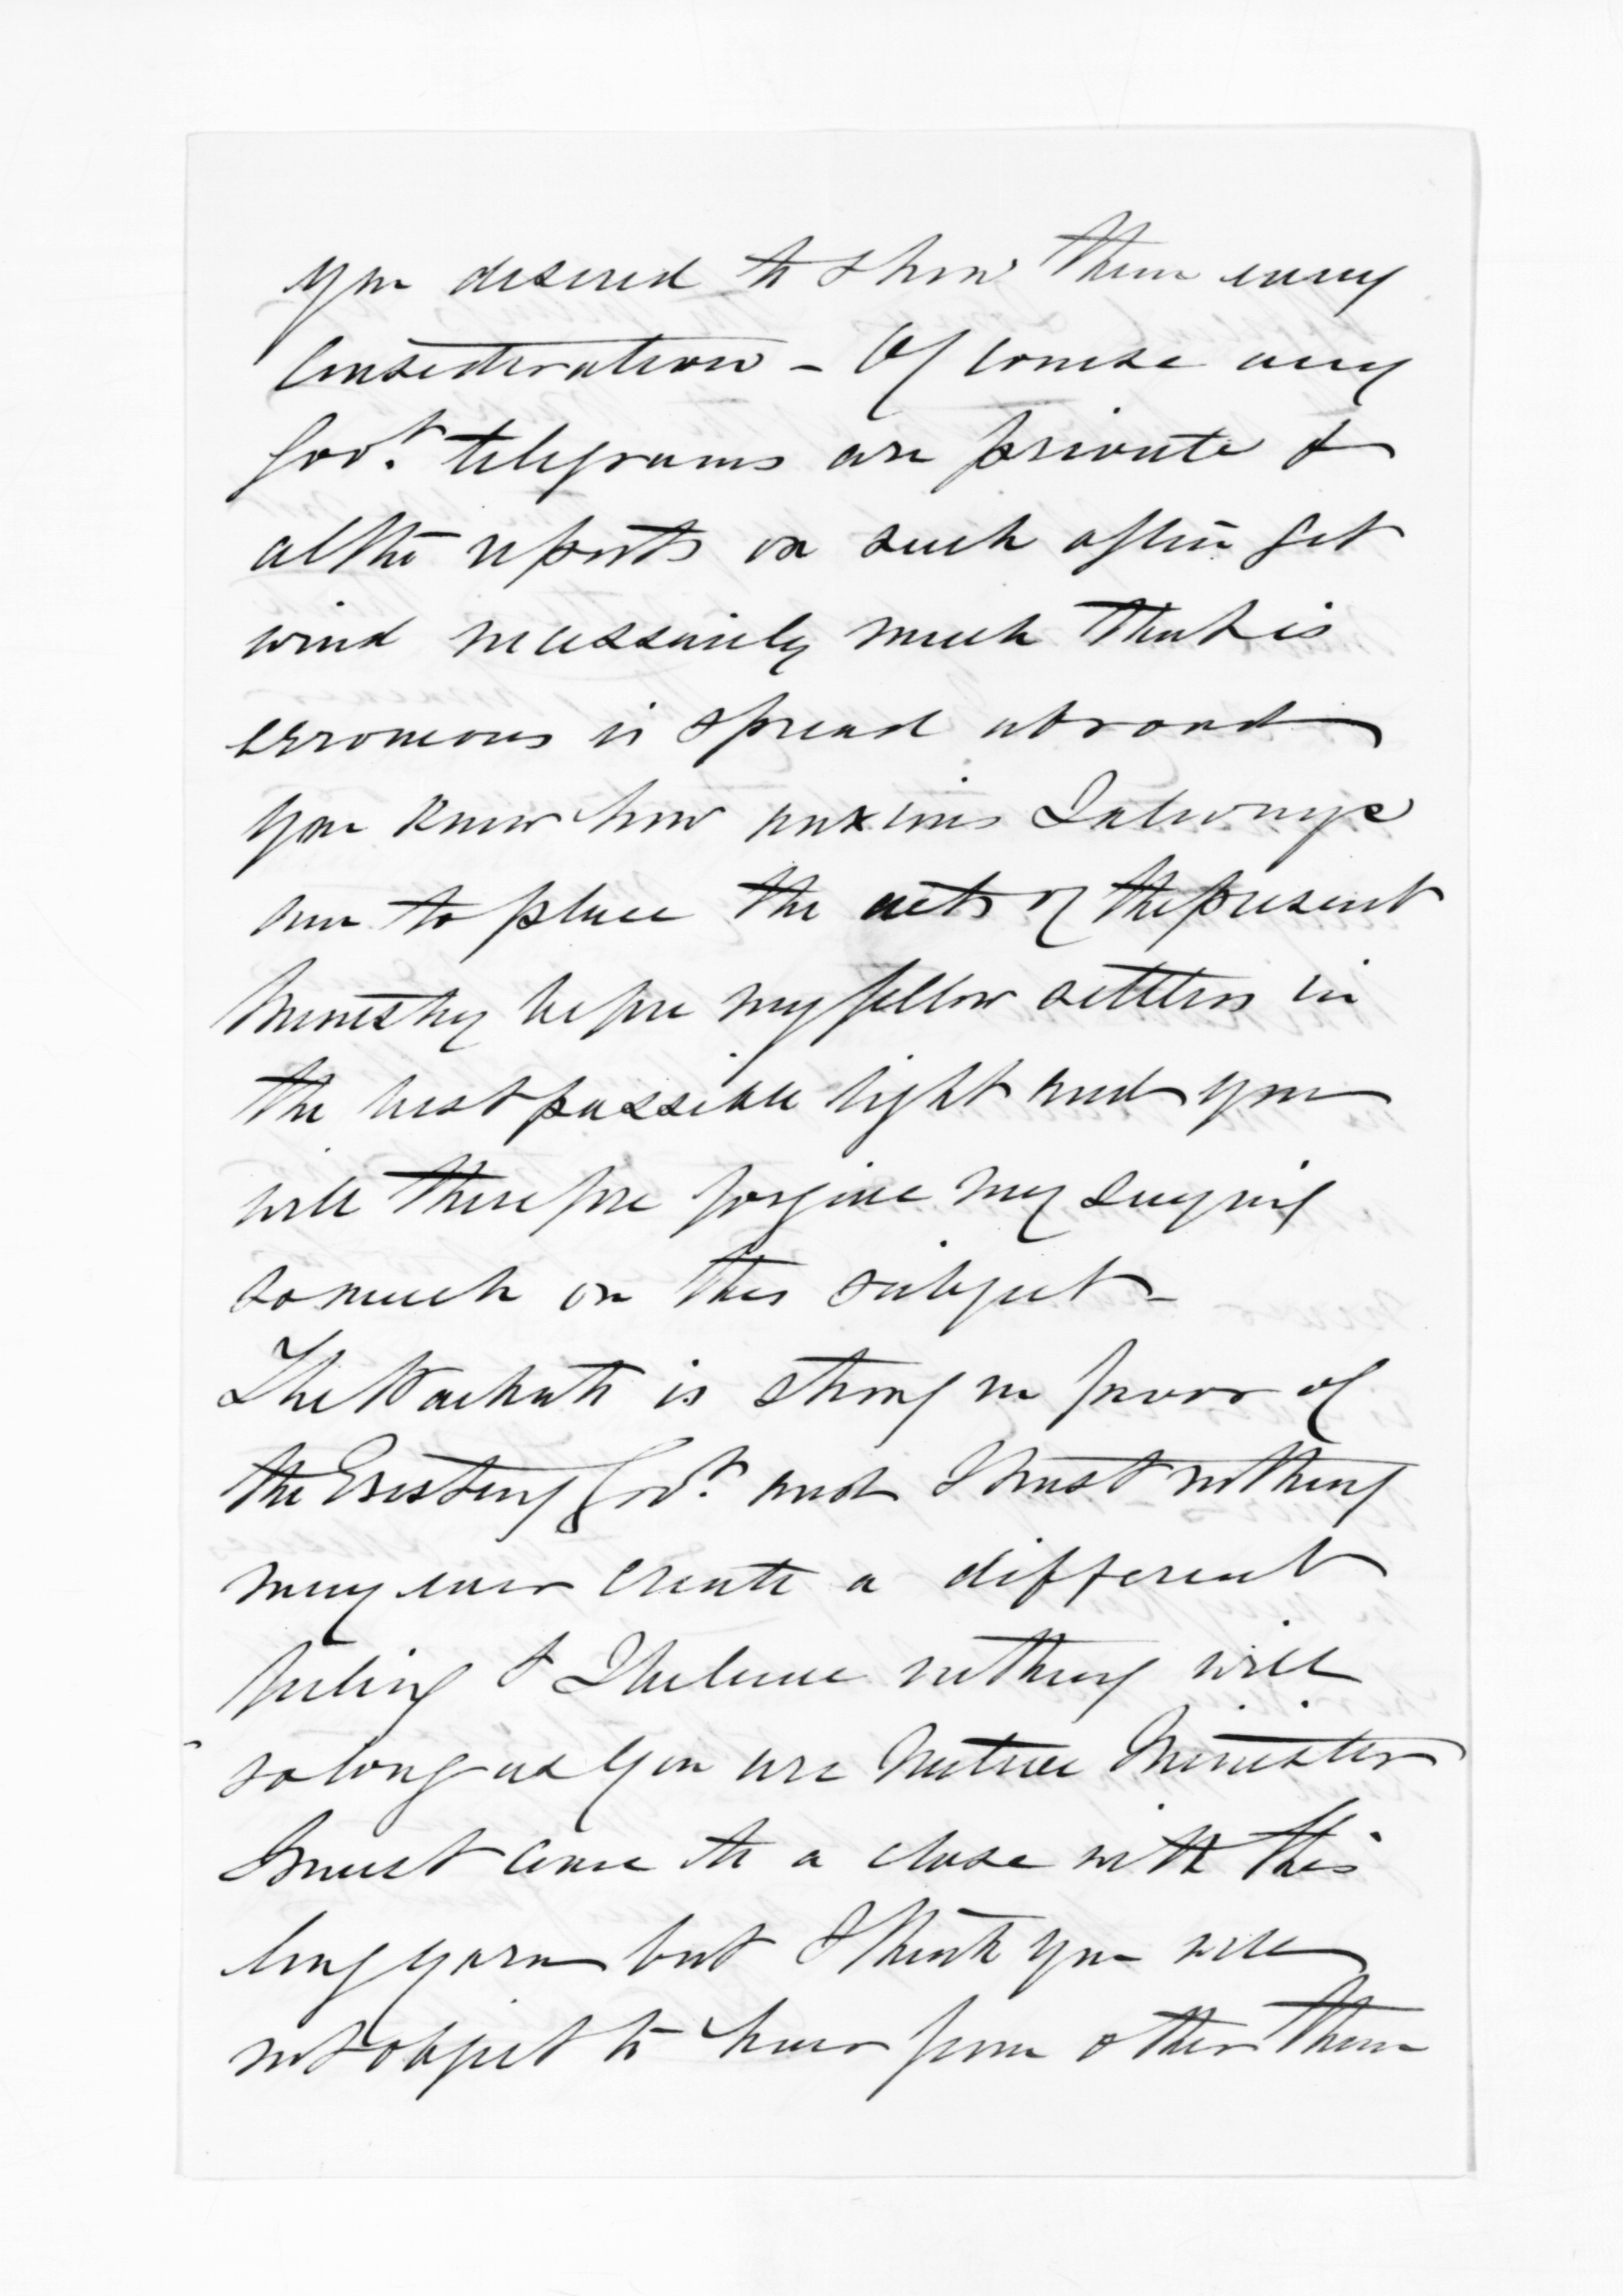 you desired to show them every
Consideration – Of course any
Govt. telegrams are private &
altho reports on such often get
wind necessarily much that is
erroneous is spread abroad
you know how anxious I always
am to place the acts of the present
Ministry before my fellow settlers in
the best possible light and you
will therefore forgive my saying
so much on this subject –
The Waikato is strong in favor of
the Existing Govt. and I trust nothing
may ever create a different
feeling & I believe nothing will
so long as you are Native Minister
I must come to a close with this
long yarn but I think you will
not object to hear from other than